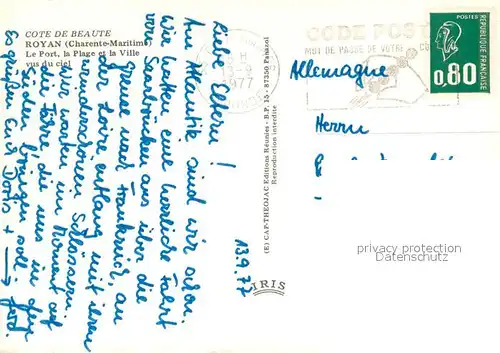 COTE DE BEAUTE
ROYAN (Charente-Maritime)
Le Port, la Plage et la Ville
vus du ciel
Liebe Eltern!
Am Atlantik sind wir schon.
Wir hatten eine herrliche Fahrt
von Saarbrücken aus über die
Grenze nach Frankreich, an
der Loire entlang mit ihren
wunderschönen Schlössern.
Wir warten im Moment auf
die Fähre, die uns in den
Süden bringen soll.
Es grüßen Euch Doris +
13.9.77
(E) CAP-THEOJAC Editions Réunies - B.P. 15 - 87350 Panazol
Reproduction interdite
IRIS
CODE POSTAL
MOT DE PASSE DE VOTRE
1977
POSTES
REPUBLIQUE FRANÇAISE
0,80
Allemagne
Herrn
privacy protection
Datenschutz